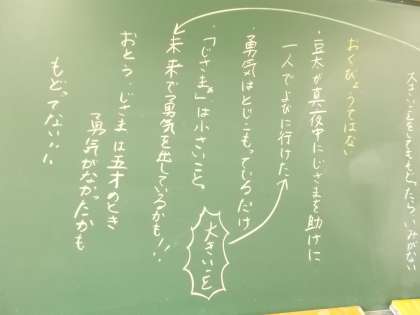 たら、いみがない
おくびょうではない
・豆太が真夜中にじさまを助けに
一人でよびに行けた。
・勇気はとじこもっているだけ
・「じさまぁ」は小さいこと。
大きいこと
未来で勇気を出しているかも!!
おとう、じさまは五才のとき
勇気がなかったかも
もどってない!!